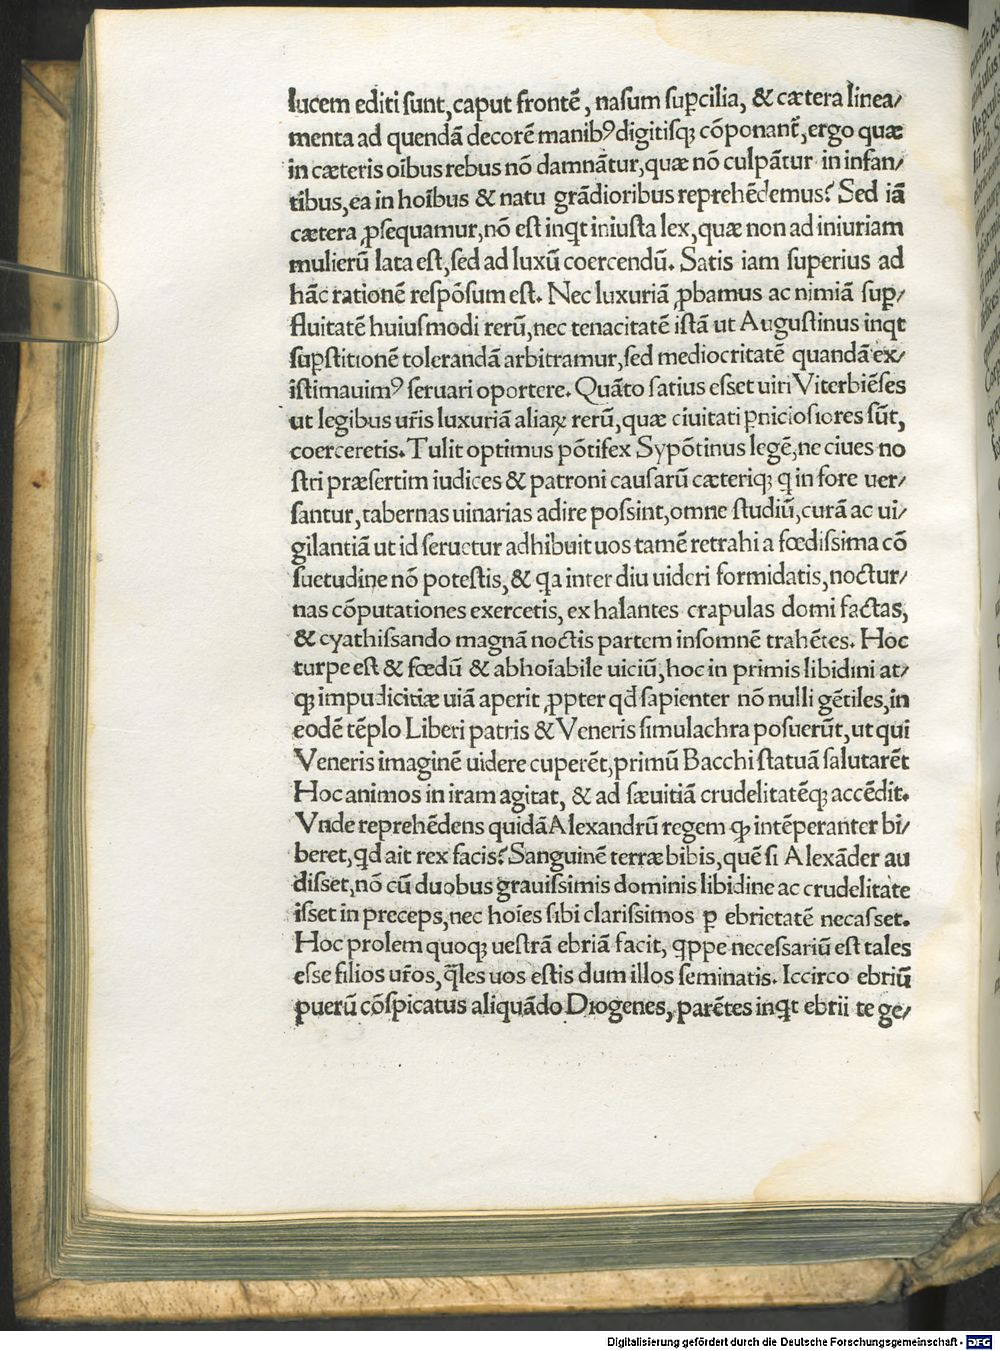 lucem editi sunt, caput frontē, nasum sup̱cilia, & cætera linea/
menta ad quendā decorē manibꝰ digitisqꝫ cōponanť, ergo quæ
in cæteris oībus rebus nō damnātur, quæ nō culpātur in infan/
tibus, ea in hoībus & natu grādioribus reprehēdemus? Sed iā
cætera ꝓsequamur, nō est inqt iniusta lex, quæ non ad iniuriam
mulierū lata est, sed ad luxū coercendū. Satis iam superius ad
hāc rationē respōsum est. Nec luxuriā ꝓbamus ac nimiā suꝑ/
fluitatē huiusmodi rerū, nec tenacitatē istā ut Augustinus inqt
suꝑstitionē tolerandā arbitramur, sed mediocritatē quandā ex/
istimauimꝰ seruari oportere. Quāto satius esset uiri Viterbiēses
ut legibus ur̄is luxuriā aliaꝝ rerū, quæ ciuitati ꝑniciosiores sūt,
coerceretis. Tulit optimus pōtifex Sypōtinus legē, ne ciues no
stri præsertim iudices & patroni causarū cæteriqꝫ q in fore uer/
santur, tabernas uinarias adire possint, omne studiū, curā ac ui/
gilantiā ut id seruetur adhibuit uos tamē retrahi a fœdissima cō
suetudine nō potestis, & qa inter diu uideri formidatis, noctur/
nas cōputationes exercetis, ex halantes crapulas domi factas,
& cyathissando magnā noctis partem insomnē trahētes. Hoc
turpe est & fœdū & abhoīabile uiciū, hoc in primis libidini at/
qꝫ impudicitiæ uiā aperit ꝓpter qd sapienter nō nulli gētiles, in
eodē tēplo Liberi patris & Veneris simulachra posuerūt, ut qui
Veneris imaginē uidere cuperēt, primū Bacchi statuā salutarēt
Hoc animos in iram agitat, & ad sæuitiā crudelitatēqꝫ accēdit.
Vnde reprehēdens quidā Alexandrū regem qꝫ intēperanter bi/
beret, qd ait rex facis? Sanguinē terræ bibis, quē si Alexāder au
disset, nō cū duobus grauissimis dominis libidine ac crudelitate
isset in preceps, nec hoīes sibi clarissimos ꝑ ebrietatē necasset.
Hoc prolem quoqꝫ uestrā ebriā facit, qppe necessariū est tales
esse filios ur̄os, q̄les uos estis dum illos seminatis. Iccirco ebriū
puerū cōspicatus aliquādo Diogenes, parētes inqt ebrii te ge/
Digitalisierung gefördert durch die Deutsche Forschungsgemeinschaft - DFG